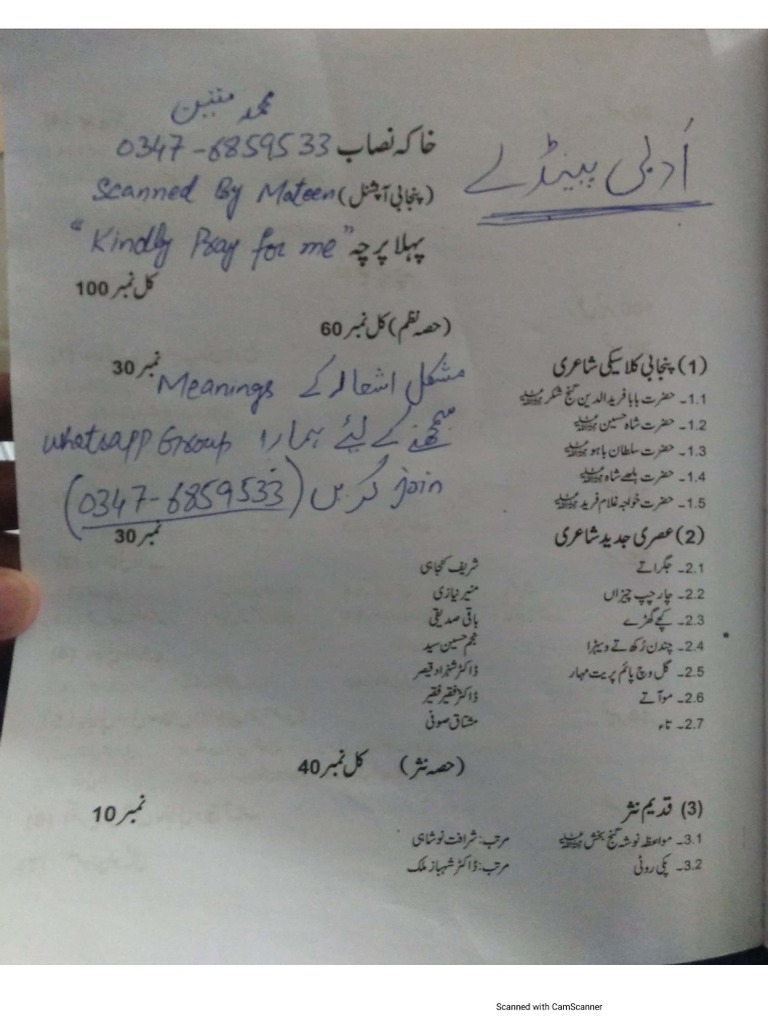 محمد متین
اَدبی پینڈے
خاکہ نصاب 0347-6859533
(پنجابی آپشنل) Scanned By Mateen
پہلا پرچہ "Kindly Pray for me"
کل نمبر 100
(حصہ نظم) کل نمبر 60
(1) پنجابی کلاسیکی شاعری نمبر 30
مشکل اشعار کے Meanings
1.1۔ حضرت بابا فرید الدین گنج شکرؒ
1.2۔ حضرت شاہ حسینؒ
سمجھنے کے لیئے ہمارا whatsapp Group
1.3۔ حضرت سلطان باہوؒ
1.4۔ حضرت بلھے شاہؒ
join کریں (0347-6859533)
1.5۔ حضرت خواجہ غلام فریدؒ
(2) عصری جدید شاعری نمبر 30
2.1۔ جگراتے شریف کنجاہی
2.2۔ چار چپ چیزاں منیر نیازی
2.3۔ کچے گھڑے باقی صدیقی
2.4۔ چندن رُکھ تے ویہڑا نجم حسین سید
2.5۔ گل وچ پائم پریت مہار ڈاکٹر شہزاد قیصر
2.6۔ موآتے ڈاکٹر فقیر فقیر
2.7۔ تاء مشتاق صوفی
(حصہ نثر) کل نمبر 40
(3) قدیم نثر نمبر 10
3.1۔ مواعظ نوشہ گنج بخشؒ مرتب: شرافت نوشاہی
3.2۔ پکی روٹی مرتب: ڈاکٹر شہباز ملک
Scanned with CamScanner